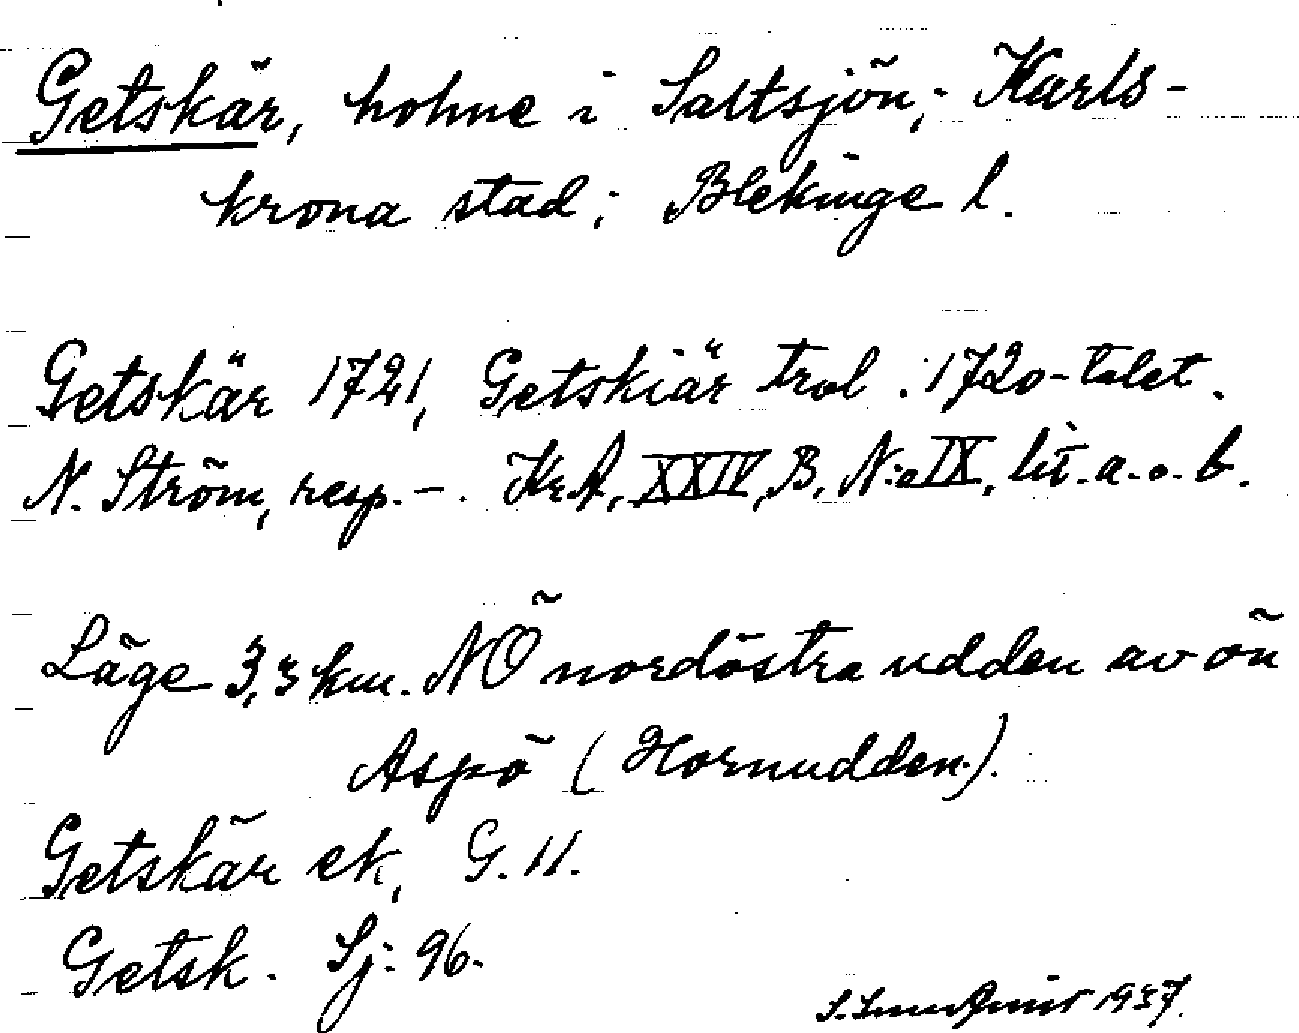 Getskär, holme i Saltsjön; Karls-
krona stad; Blekinge l.
Getskär 1721, Getskiär trol. 1720-talet.
N. Ström, resp. -. Kr.A, XXIV, B. N:o IX, lit. a. o. b.
Läge 3,3 km. NÖ nordöstra udden av ön
Aspö (Hornudden).
Getskär ek, G. 11.
Getsk. Sj: 96.
1937.